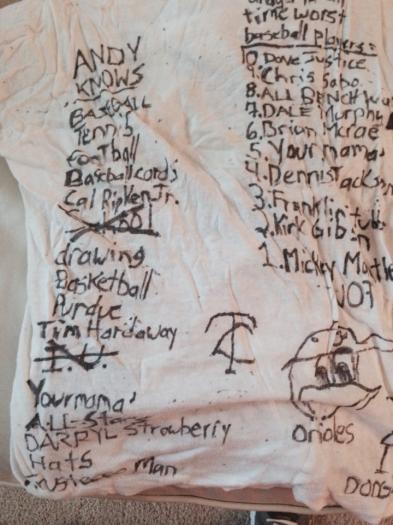 ANDY
KNOWS
BASEBALL
Tennis
Football
Baseball cards
Cal Ripken Jr.
drawing
Basketball
Purdue
Tim Hardaway
I.U.
Yourmama
ALL-Stars
DARRYL Strawberry
Hats
Man
time worst
baseball players:
10. Dave Justice
9. Chris Sabo
8. ALL BENCH
7. DALE Murphy
6. Brian Mcrae
5. Your mama
4. Dennis Jackson
3. Franklin tubbs
2. Kirk Gibson
1. Mickey Mantle
Orioles